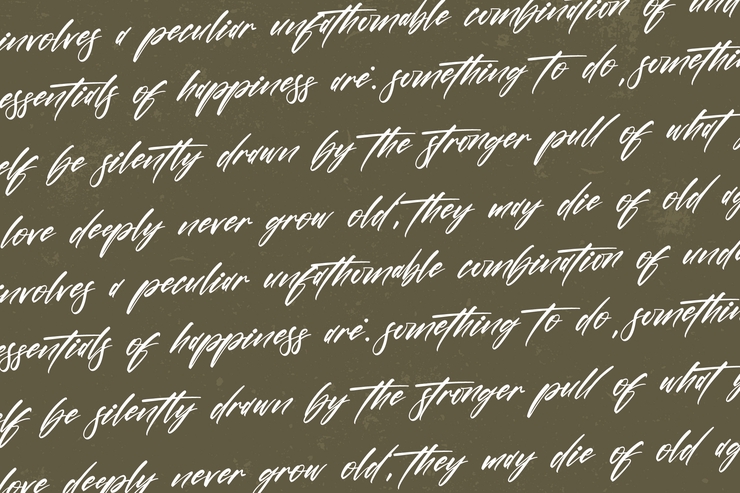 involves a peculiar unfathomable combination of und
essentials of happiness are: something to do, somethi
elf be silently drawn by the stronger pull of what y
love deeply never grow old, they may die of old ag
involves a peculiar unfathomable combination of unde
essentials of happiness are: something to do, somethin
elf be silently drawn by the stronger pull of what y
love deeply never grow old, they may die of old ag